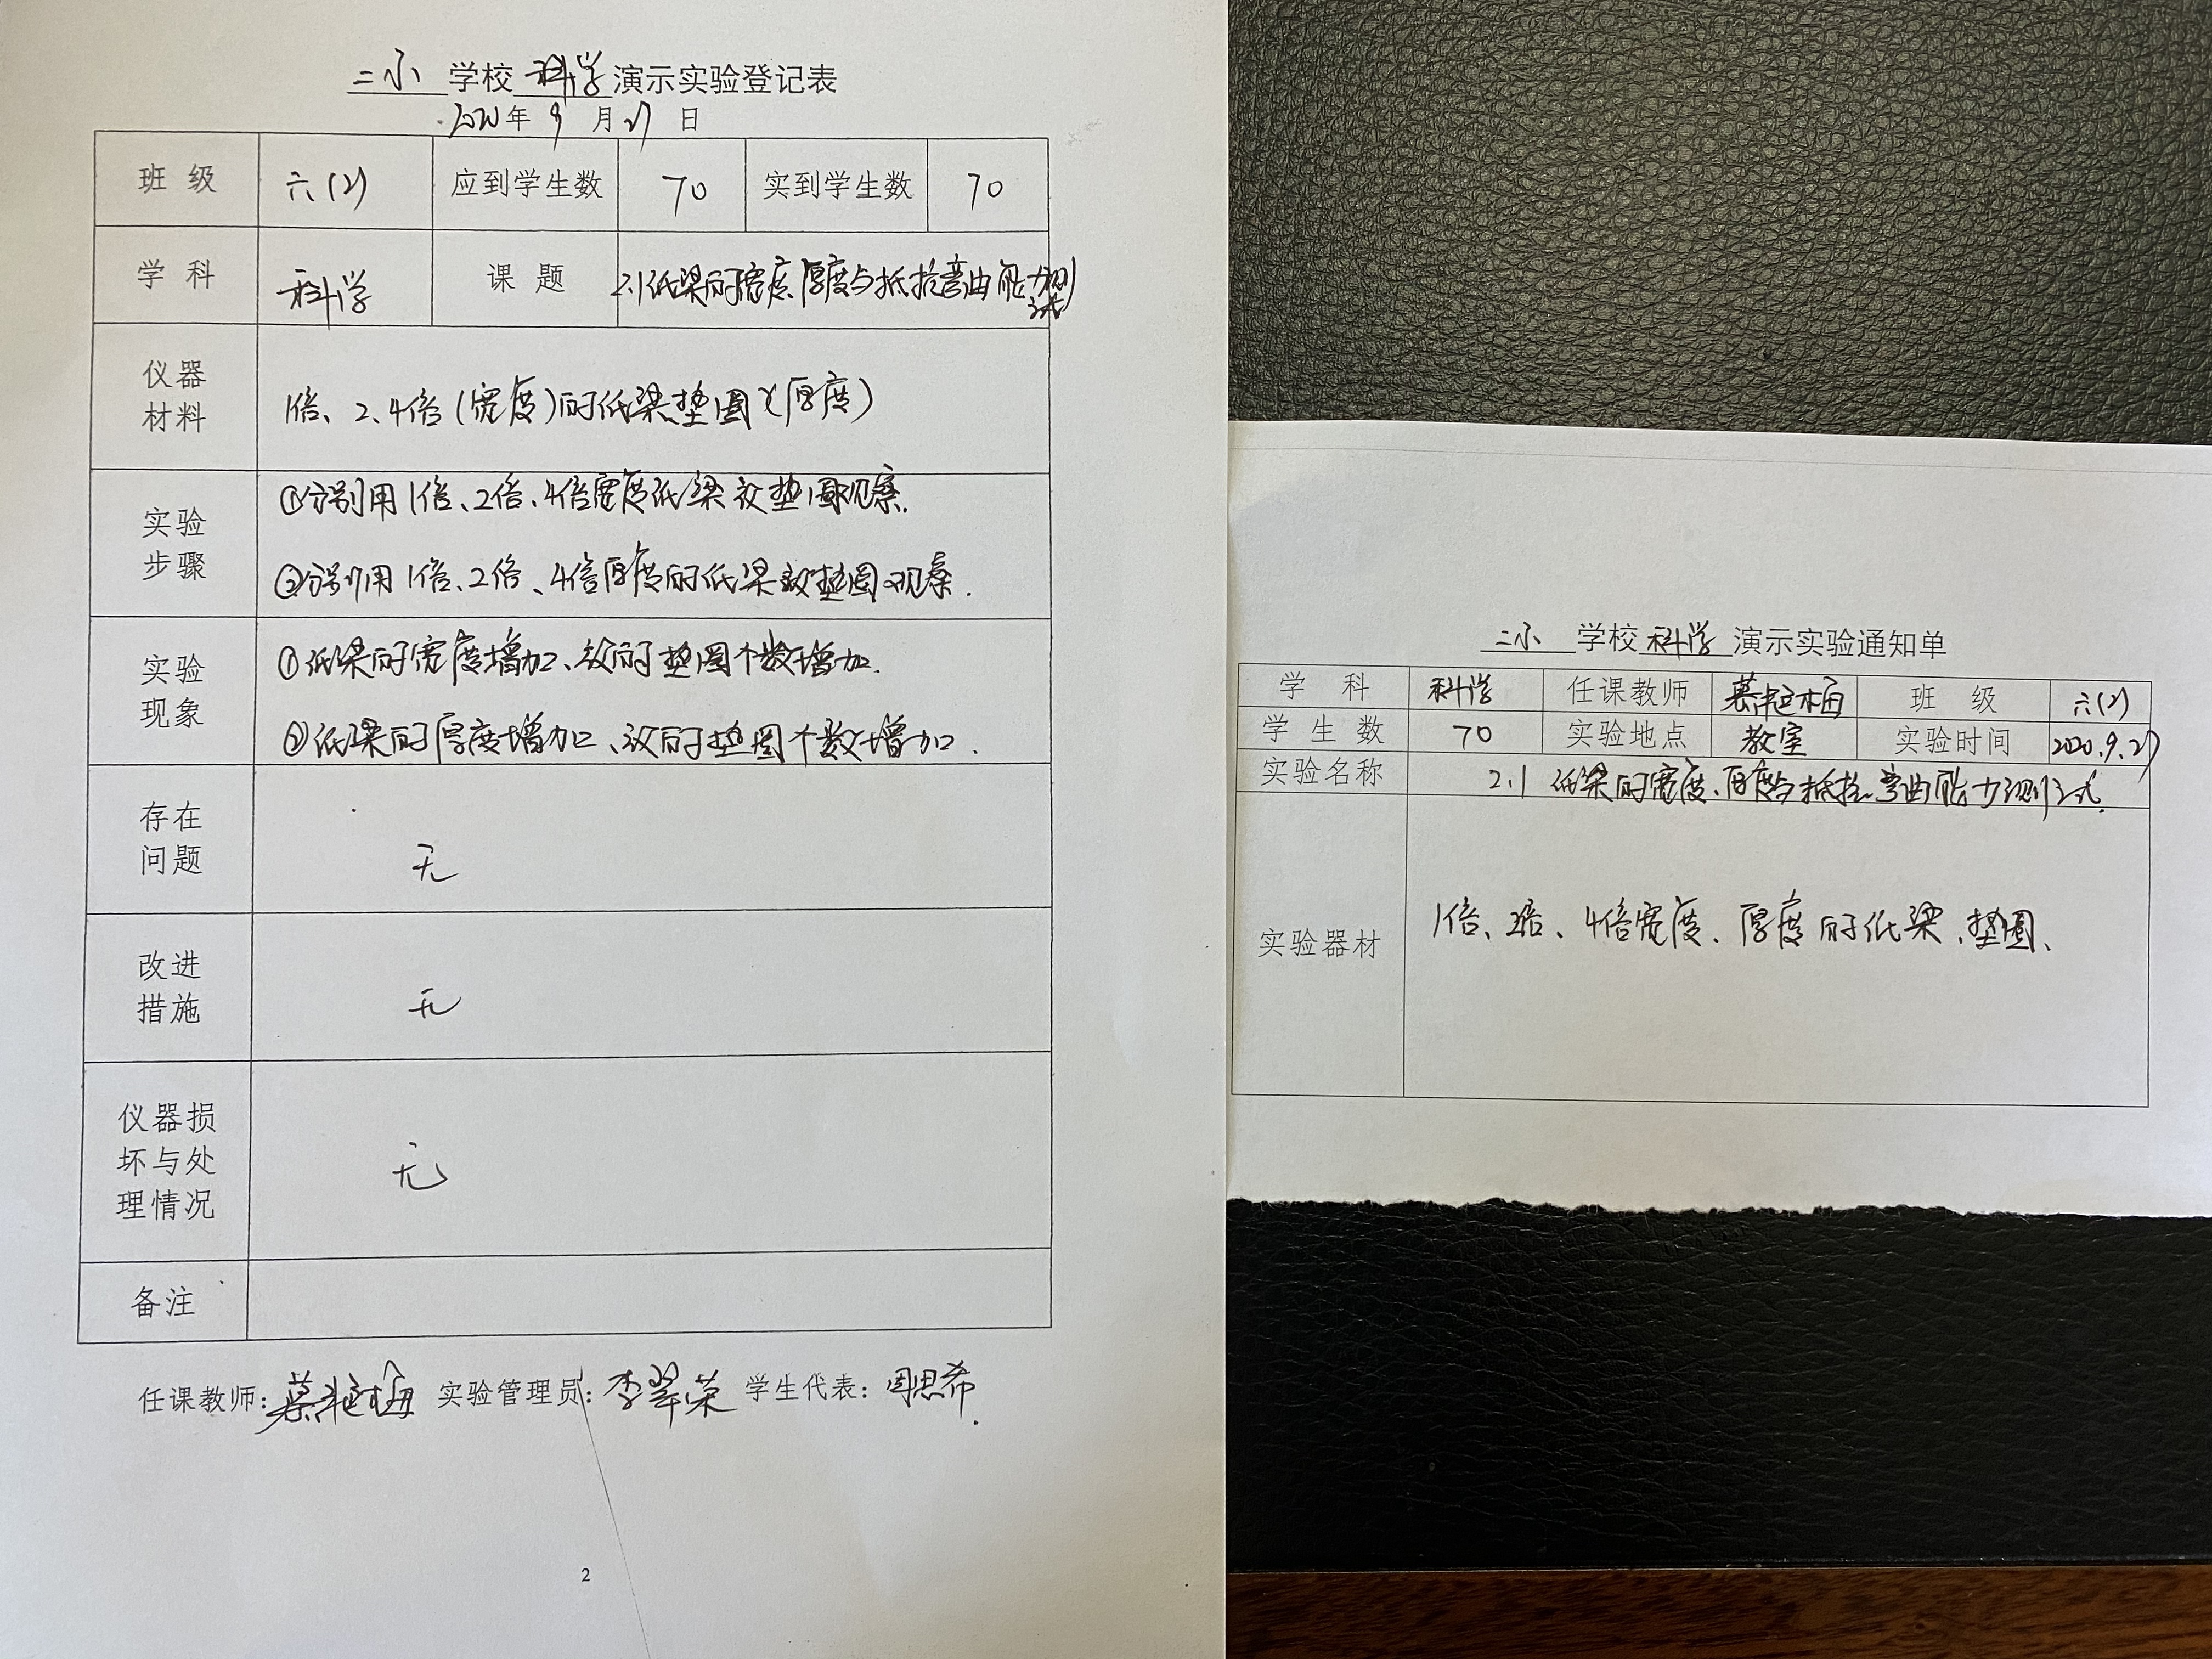 二小 学校 科学 演示实验登记表
2020年 9 月 27 日
班 级 六(2) 应到学生数 70 实到学生数 70
学 科 科学 课 题 2.1 纸梁的宽度、厚度与抵抗弯曲能力测试
仪器
材料
1倍、2、4倍(宽度)的纸梁、垫圈 (厚度)
实验
步骤
①分别用1倍、2倍、4倍宽度纸梁放垫圈观察.
②分别用1倍、2倍、4倍厚度的纸梁放垫圈观察.
实验
现象
①纸梁的宽度增加、放的垫圈个数增加.
②纸梁的厚度增加、放的垫圈个数增加.
存在
问题
无
改进
措施
无
仪器损
坏与处
理情况
无
备注
任课教师: 实验管理员: 李翠荣 学生代表: 周思希
2
二小 学校 科学 演示实验通知单
学 科 科学 任课教师 班 级 六(2)
学 生 数 70 实验地点 教室 实验时间 2020.9.27
实验名称 2.1 纸梁的宽度、厚度与抵抗弯曲能力测试.
实验器材 1倍、2倍、4倍宽度、厚度的纸梁、垫圈、